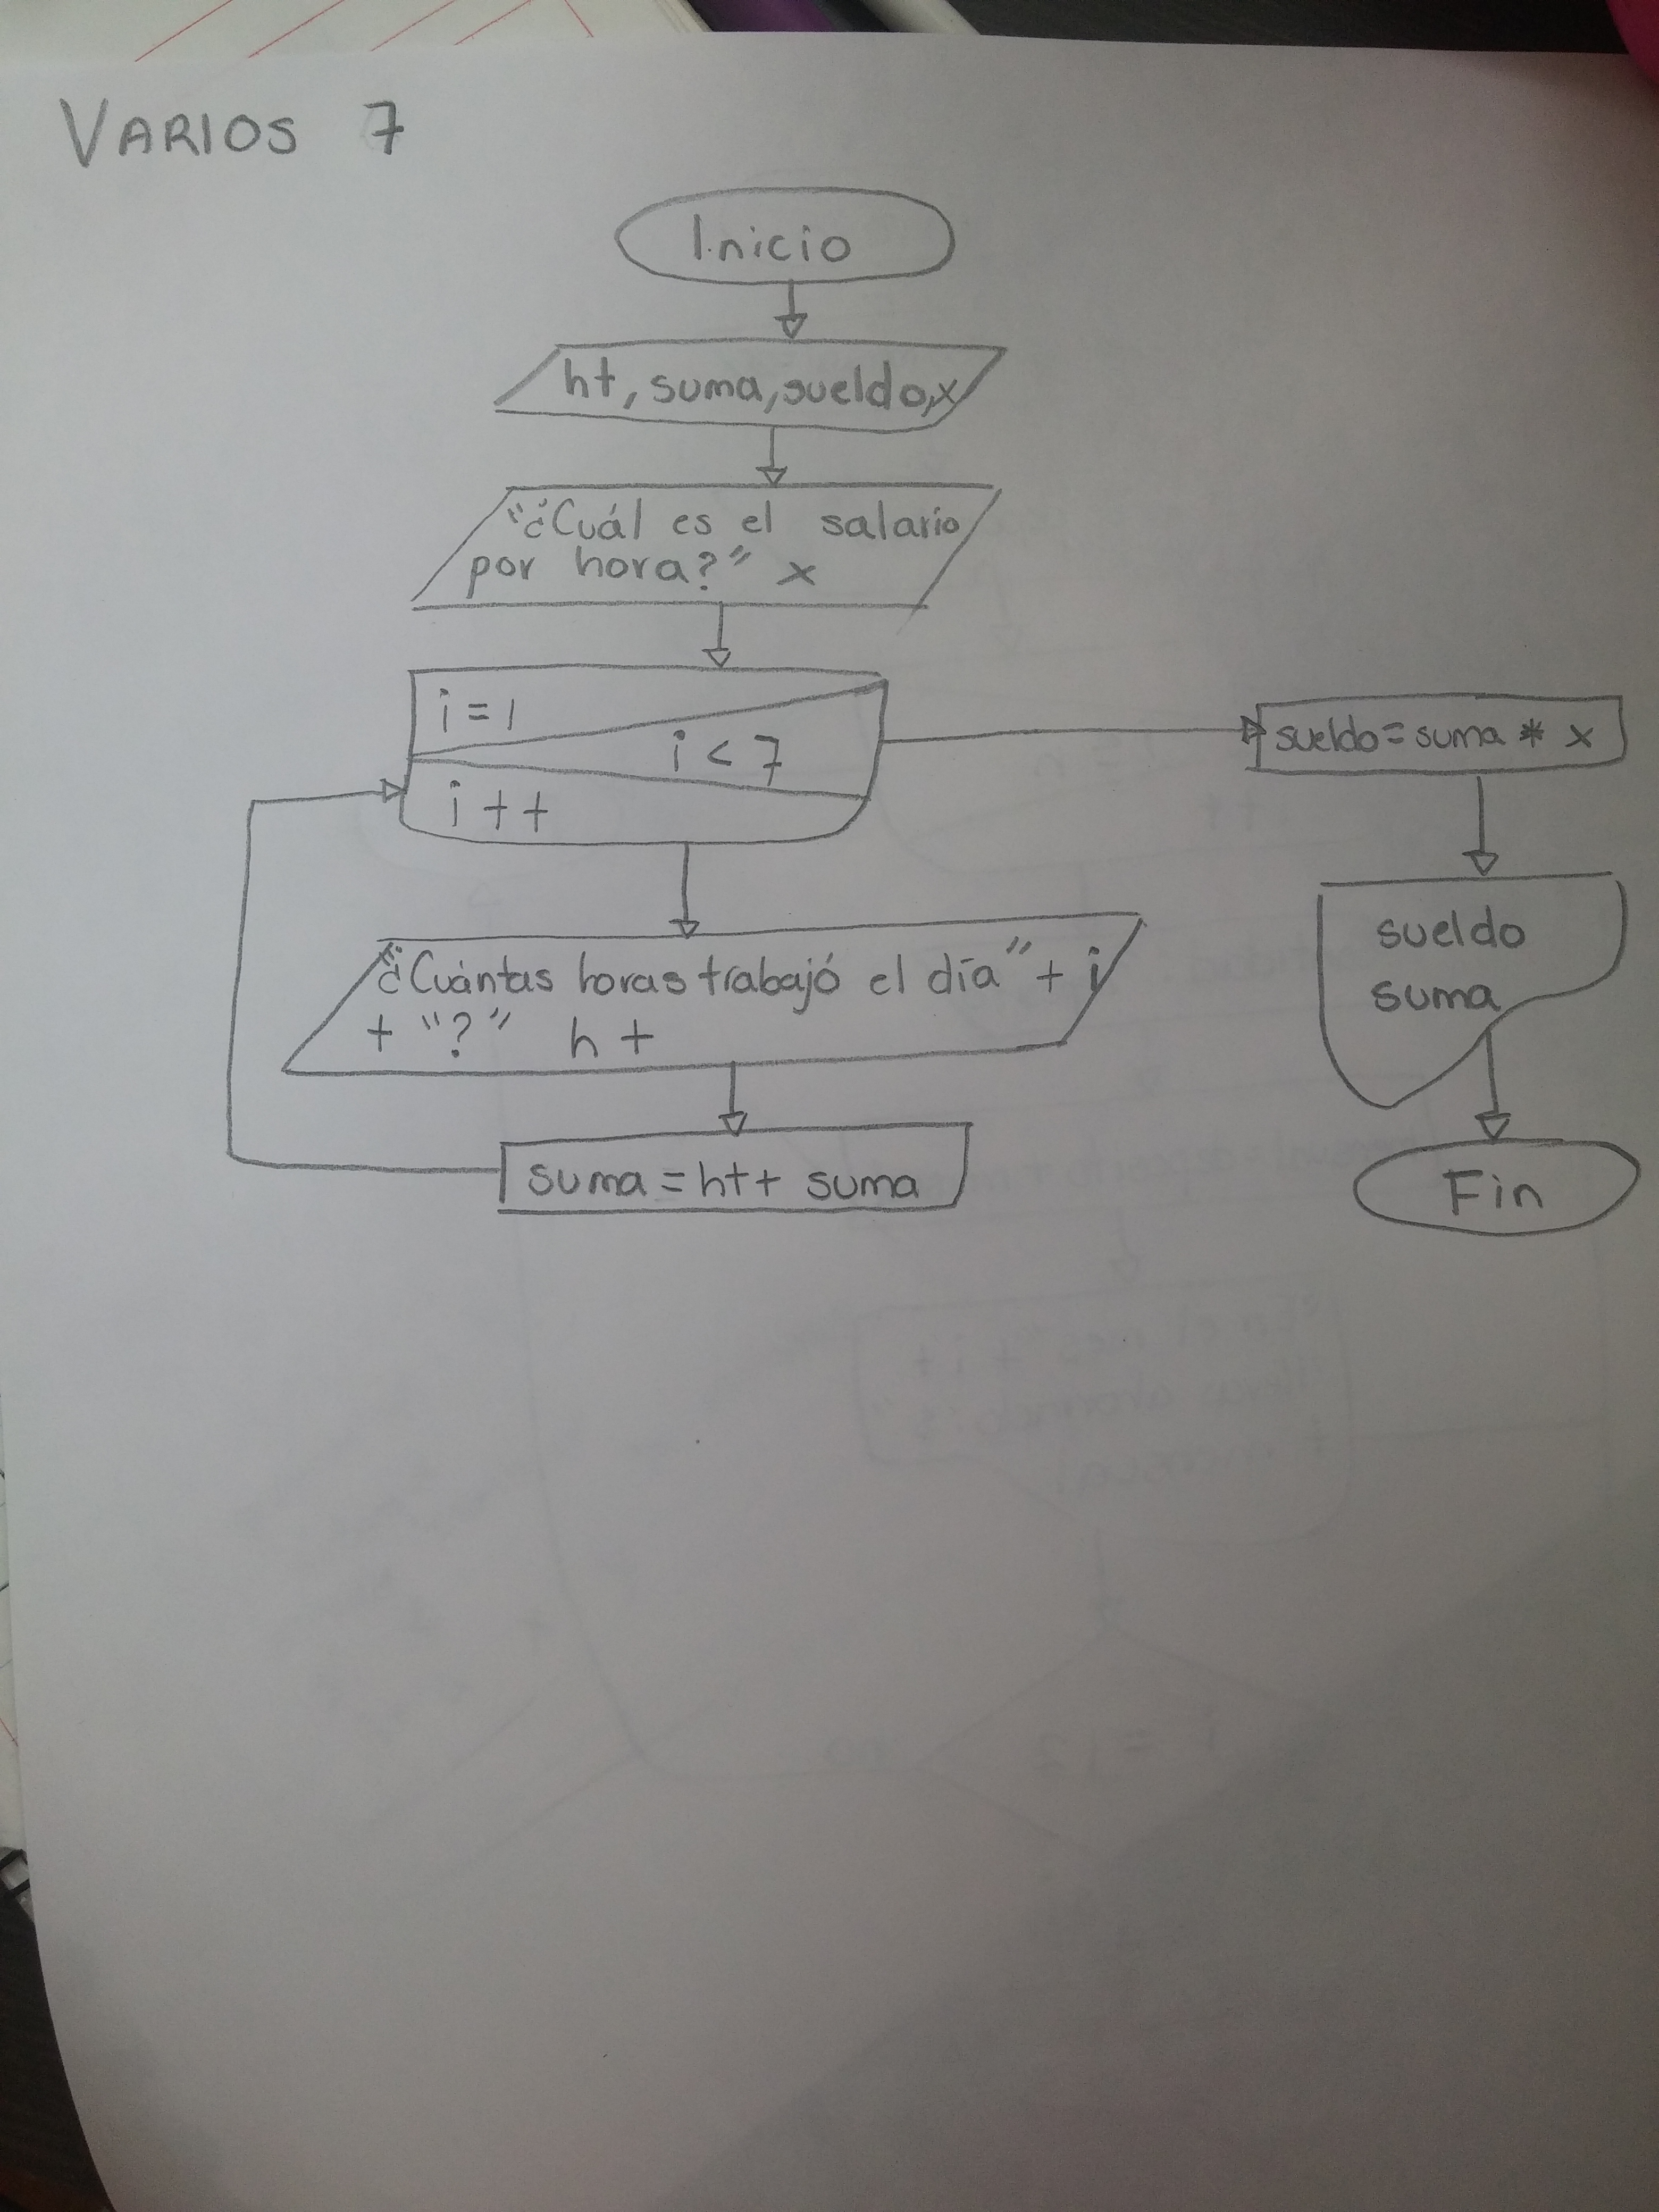 VARIOS 7
Inicio
ht, suma, sueldo, x
"¿Cuál es el salario
por hora?" x
i = 1
i < 7
i ++
"¿Cuántas horas trabajó el día" + i
+ "?" ht
suma = ht + suma
sueldo = suma * x
sueldo
suma
Fin